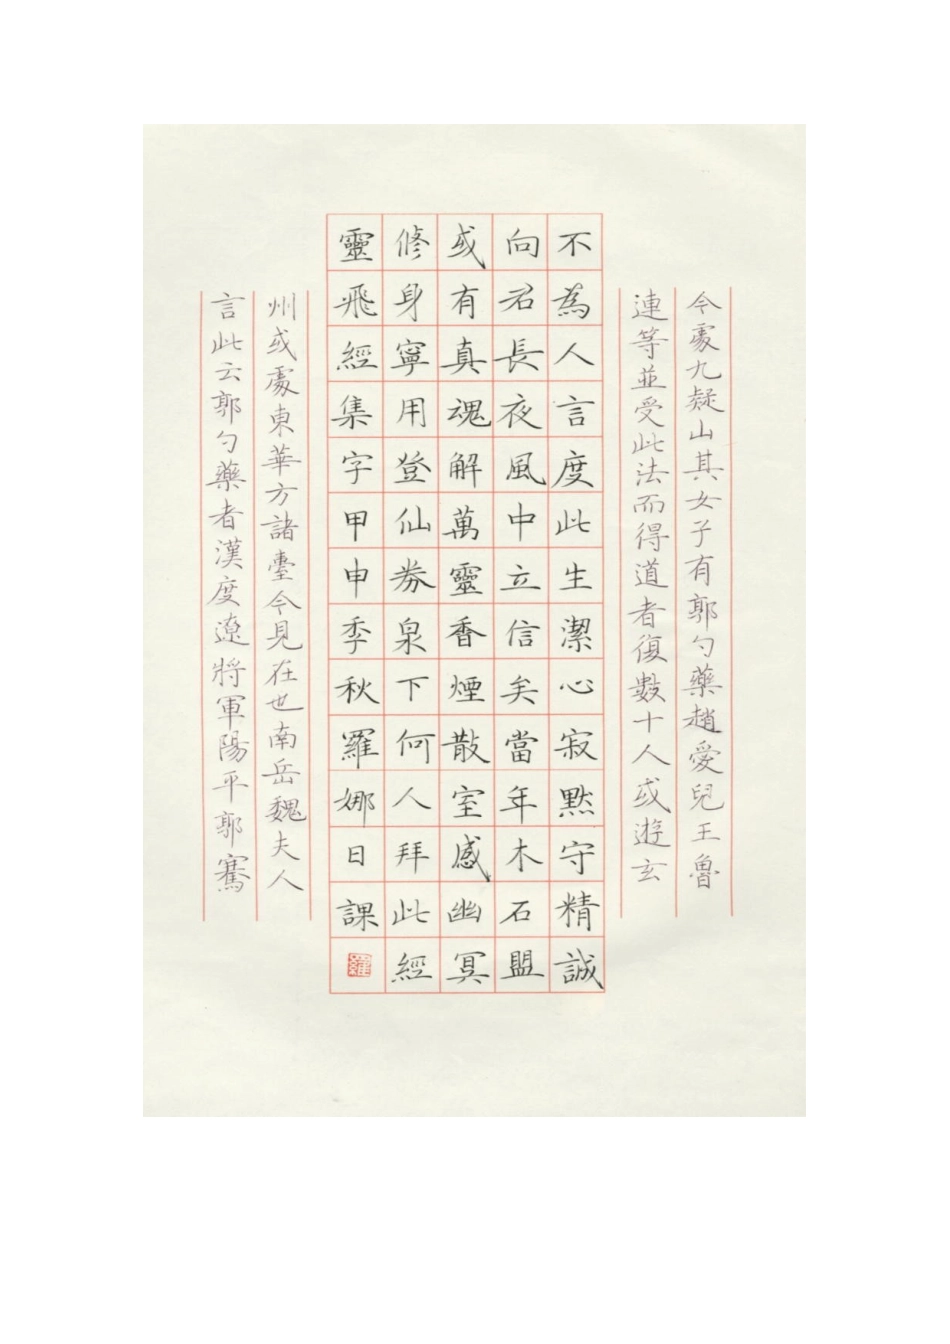 今處九疑山其女子有郭勺藥趙愛兒王魯
連等並受此法而得道者復數十人或遊玄
不為人言度此生潔心寂默守精誠
向君長夜風中立信矣當年木石盟
或有真魂解萬靈香煙散室感幽冥
修身寧用登仙券泉下何人拜此經
靈飛經集字甲申季秋羅娜日課
羅
州或處東華方諸臺今見在世南岳魏夫人
言此云郭勺藥者漢度遼將軍陽平郭騫